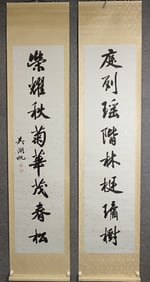 庭列瑶階林挺璚樹
榮耀秋菊華茂春松
吳湖帆